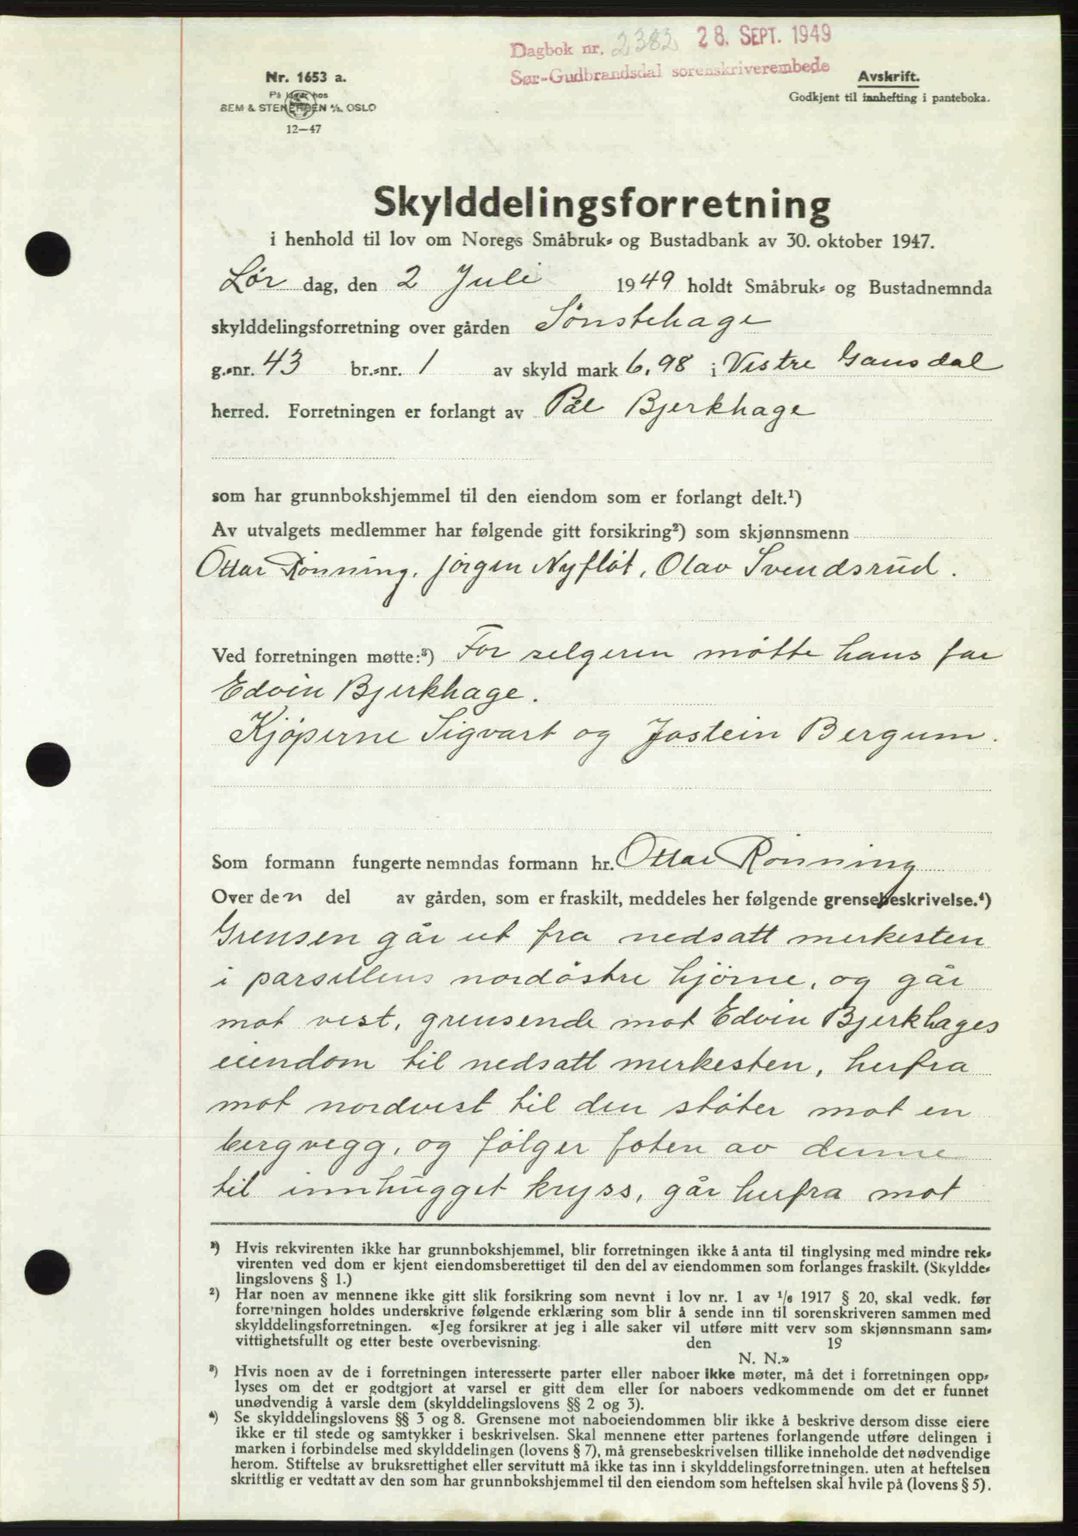 Dagbok nr. 2382 28. SEPT. 1949
Sør-Gudbrandsdal sorenskriverembede
Nr. 1653 a.
På lager hos
SEM & STENERSEN A/S. OSLO
12—47
Avskrift.
Godkjent til innhefting i panteboka.
Skylddelingsforretning
i henhold til lov om Noregs Småbruk- og Bustadbank av 30. oktober 1947.
Lør dag, den 2 Juli 1949 holdt Småbruk- og Bustadnemnda
skylddelingsforretning over gården Sønstehage
g.-nr. 43 br.-nr. 1 av skyld mark 6,98 i Vestre Gausdal
herred. Forretningen er forlangt av Pål Bjerkhage
som har grunnbokshjemmel til den eiendom som er forlangt delt.¹)
Av utvalgets medlemmer har følgende gitt forsikring²) som skjønnsmenn
Ottar Rønning, Jørgen Nyfløt, Olav Svendsrud.
Ved forretningen møtte:³) For selgeren møtte hans far
Edvin Bjerkhage.
Kjøperne Sigvart og Jostein Bergum.
Som formann fungerte nemndas formann hr. Ottar Rønning
Over den del av gården, som er fraskilt, meddeles her følgende grensebeskrivelse.⁴)
Grensen går ut fra nedsatt merkesten
i parsellens nordøstre hjørne, og går
mot vest, grensende mot Edvin Bjerkhages
eiendom til nedsatt merkesten, herfra
mot nordvest til den støter mot en
bergvegg, og følger foten av denne
til innhugget kryss, går herfra mot
¹) Hvis rekvirenten ikke har grunnbokshjemmel, blir forretningen ikke å anta til tinglysing med mindre rek-
virenten ved dom er kjent eiendomsberettiget til den del av eiendommen som forlanges fraskilt. (Skyldde-
lingslovens § 1.)
²) Har noen av mennene ikke gitt slik forsikring som nevnt i lov nr. 1 av 1/6 1917 § 20, skal vedk. før
forretningen holdes underskrive følgende erklæring som blir å sende inn til sorenskriveren sammen med
skylddelingsforretningen. «Jeg forsikrer at jeg i alle saker vil utføre mitt verv som skjønnsmann sam-
vittighetsfullt og etter beste overbevisning. den 19
N. N.»
³) Hvis noen av de i forretningen interesserte parter eller naboer ikke møter, må det i forretningen opp-
lyses om det er godtgjort at varsel er gitt dem eller for naboers vedkommende om det er funnet
unødvendig å varsle dem (skylddelingslovens §§ 2 og 3).
⁴) Se skylddelingslovens §§ 3 og 8. Grensene mot naboeiendommen blir ikke å beskrive dersom disse eiere
ikke er til stede og samtykker i beskrivelsen. Skal mennene etter partenes forlangende utføre delingen i
marken i forbindelse med skylddelingen (lovens § 7), må grensebeskrivelsen tillike inneholde det nødvendige
herom. Stiftelse av bruksrettighet eller servitutt må ikke tas inn i skylddelingsforretningen. uten at heftelsen
skriftlig er vedtatt av den som har grunnbokshjemmel til den eiendom som heftelsen skal hvile på (lovens § 5).